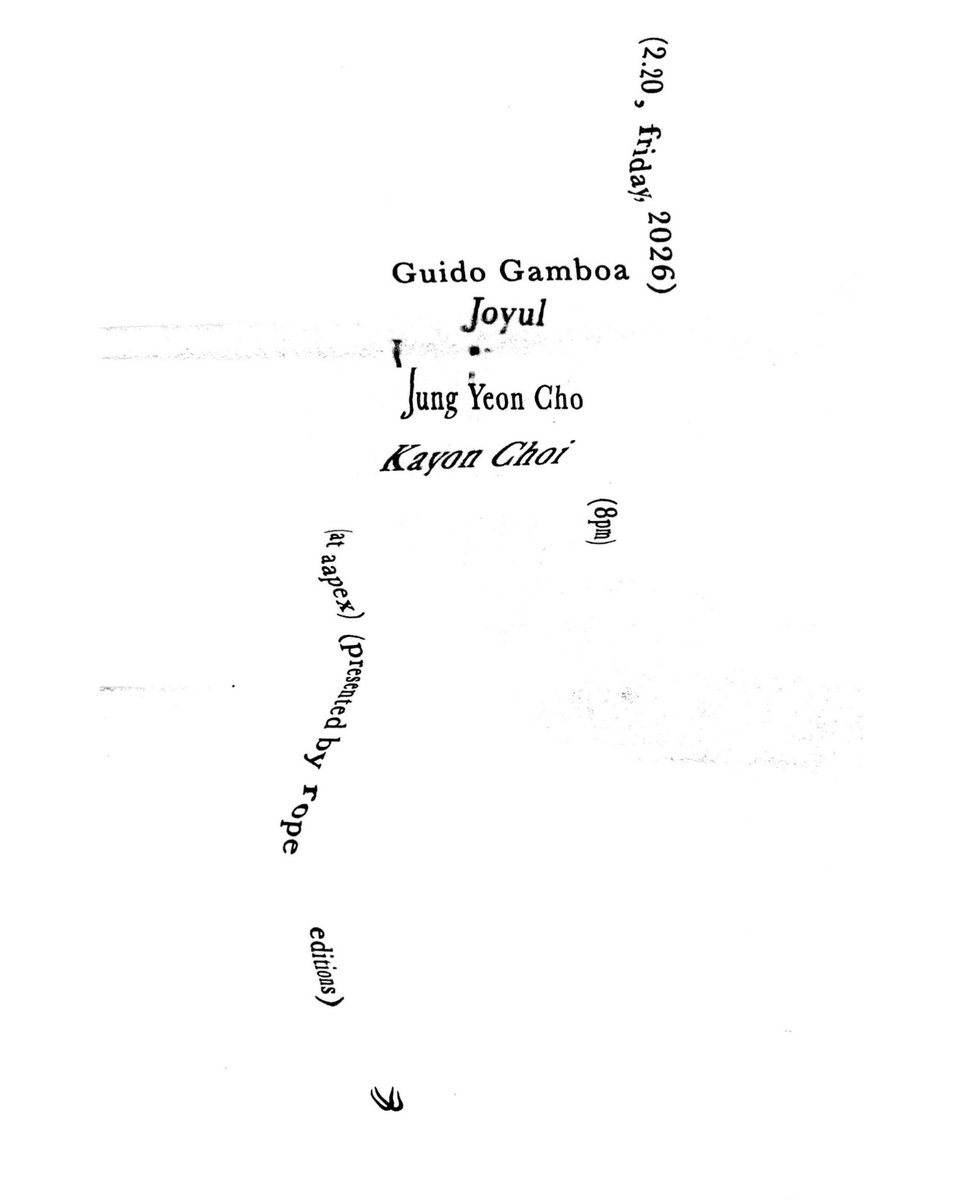 (2.20, friday, 2026)
Guido Gamboa
Joyul
Jung Yeon Cho
Kayon Choi
(8pm)
(at aapex) (presented by rope editions)